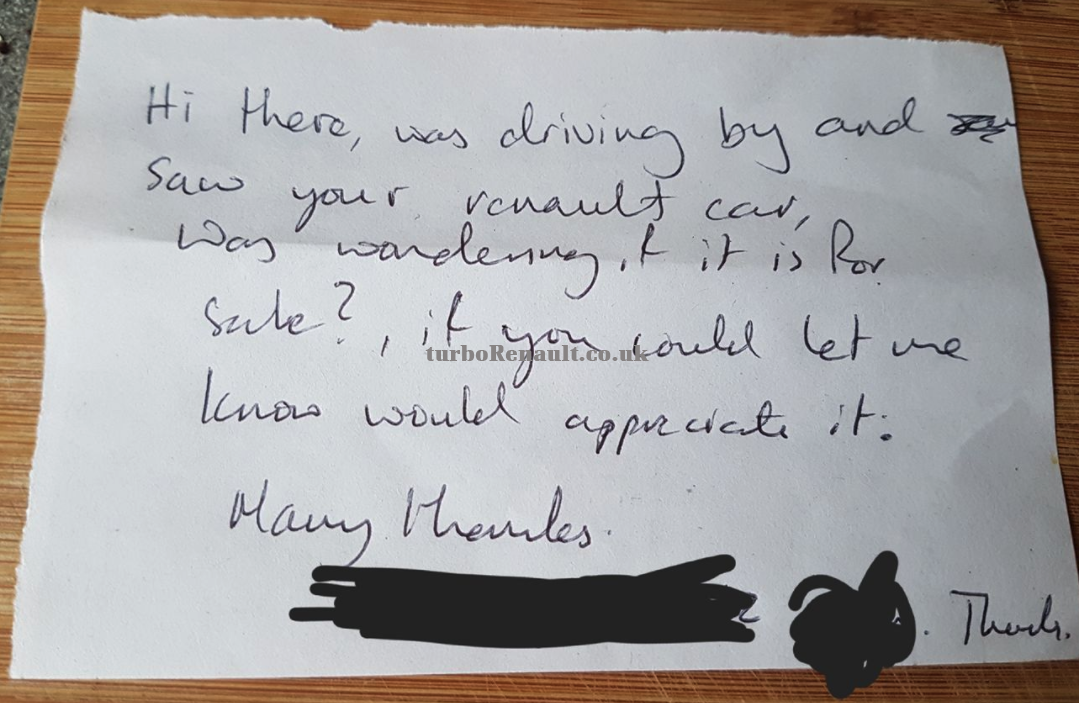 Hi there, was driving by and
saw your renault car,
Was wondering, if it is for
sale?, if you could let me
turboRenault.co.uk
know would appreciate it.
Many thanks.
Thanks.